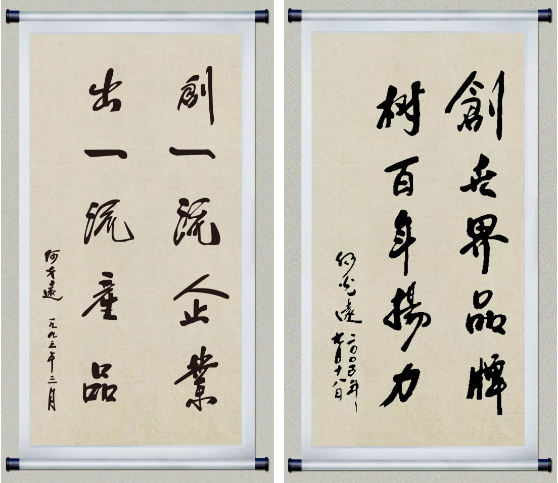 創一流企業
出一流產品
何光遠
一九九三年二月
創世界品牌
树百年揚力
何光遠
二〇〇五年
十八日